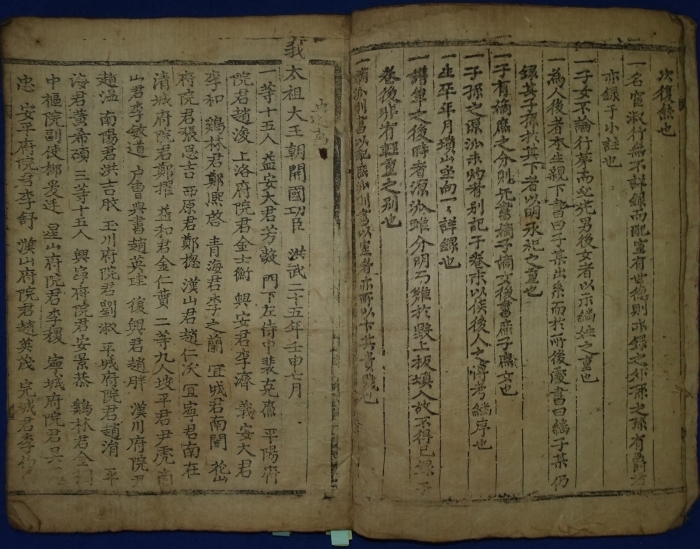 次復能也
一名官淑行縱不詳錄而配室有世德則亦錄之外孫之孫有爵
亦錄子小註也
一子女不論行第而必先男後女者以示編姓之重也
一為人後者本生親下書曰子某出系而於所後處書曰繼子某仍
錄其子孫於其下者以明承祀之重也
一子有嫡庶之分則先書嫡子嫡女後書庶子庶女也
一子孫之源派未攷者別記于卷末以俟後人之博考繼序也
一生卒年月墳山坐向一一詳錄也
一譜單之後時者源派雖分明而難於毀上板塡入故不得已錄于
卷後非有輕重之別也
我太祖大王朝開國功臣 洪武二十五年壬申七月
一等十五人 益安大君芳毅 門下左侍中裴克廉 平陽府
院君趙浚 上洛府院君金士衡 興安君李濟 義安大君
李和 鷄林君鄭熙啓 青海君李之蘭 宜城君南誾
府院君張思吉 西原君鄭摠 漢山君趙仁沃 宜寧君南在
清城府院君鄭擢 益和君金仁賛 二等九人坡平君尹虎 南
山君李敏道 戶曹典書趙英珪 復興君趙胖 漢川府院君
趙溫 南陽君洪吉旼 玉川府院君劉敞 平城府院君趙涓 平
海君黃希碩 三等十五人 興寧府院君安景恭 鷄林君金稛
中樞院副使柳爰廷 星山府院君李稷 寧城府院君吳
忠 安平府院君李舒 漢山府院君趙英茂 完城君李